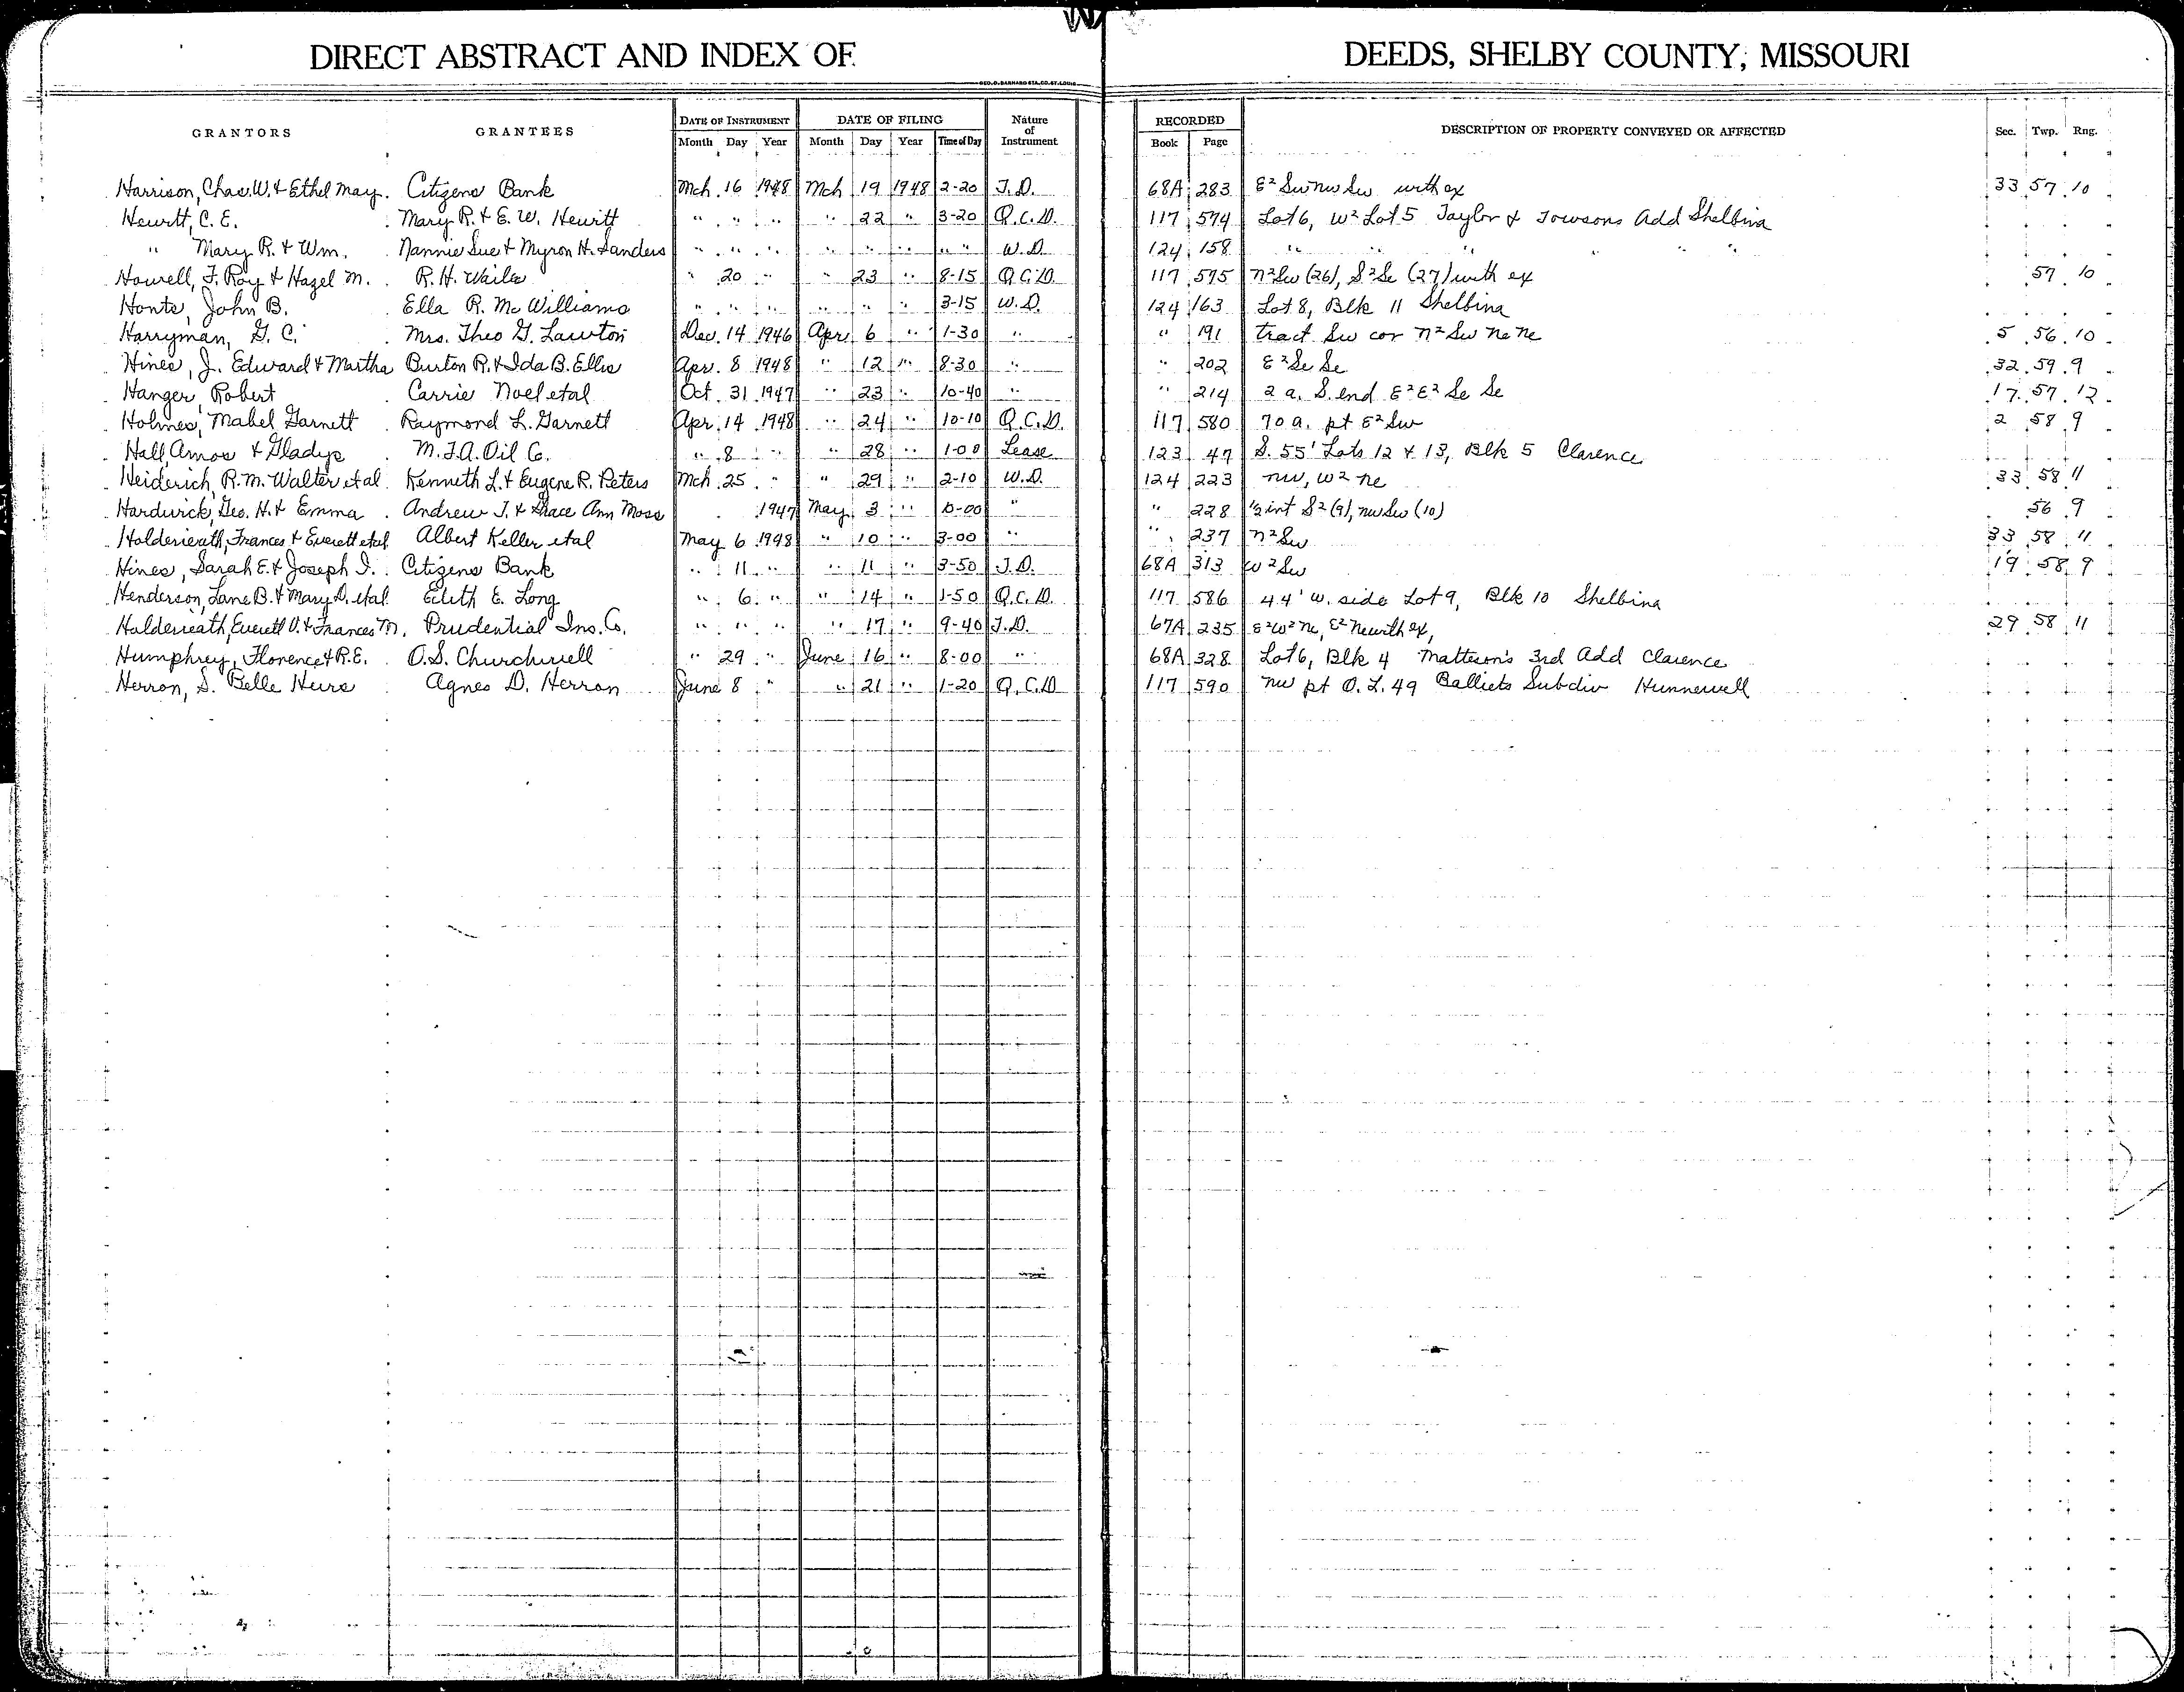 DIRECT ABSTRACT AND INDEX OF DEEDS, SHELBY COUNTY, MISSOURI
GEO. D. BARNARD STA. CO. ST. LOUIS
GRANTORS GRANTEES DATE OF INSTRUMENT DATE OF FILING Nature of Instrument RECORDED DESCRIPTION OF PROPERTY CONVEYED OR AFFECTED Sec. Twp. Rng.
Month Day Year Month Day Year Time of Day Book Page
Harrison, Chas. W. & Ethel May Citizens Bank Mch 16 1948 Mch 19 1948 2-20 T.D. 68A 283 E² Sw Nw Sw with ex 33 57 10
Hewitt, C. E. Mary R. & E. W. Hewitt " " " " 22 " 3-20 Q.C.D. 117 574 Lot 6, W² Lot 5 Taylor & Towsons Add Shelbina
" Mary R. & Wm. Nannie Sue & Myron H. Sanders " " " " " " " " W.D. 124 158 " " " " "
Howell, F. Roy & Hazel M. R. H. Waile " 20 " " 23 " 8-15 Q.C.D. 117 575 N² Sw (26), S² Se (27) with ex 57 10
Honts, John B. Ella R. McWilliams " " " " " " 3-15 W.D. 124 163 Lot 8, Blk 11 Shelbina
Harryman, G. C. Mrs. Theo G. Lawton Dec. 14 1946 Apr 6 " 1-30 " " 191 tract Sw cor N² Sw Ne Ne 5 56 10
Hines, J. Edward & Martha Burton R. & Ida B. Ellis Apr. 8 1948 " 12 " 8-30 " " 202 E² Se Se 32 59 9
Hanger, Robert Carrie Noel etal Oct. 31 1947 " 23 " 10-40 " " 214 2 a. S. end E² E² Se Se 17 57 12
Holmes, Mabel Garnett Raymond L. Garnett Apr. 14 1948 " 24 " 10-10 Q.C.D. 117 580 70 a. pt E² Sw 2 58 9
Hall, Amos & Gladys M.F.A. Oil Co. " 8 " " 28 " 1-00 Lease 123 47 S. 55' Lots 12 & 13, Blk 5 Clarence
Heiderich, R. M. Walter etal Kenneth L. & Eugene R. Peters Mch 25 " " 29 " 2-10 W.D. 124 223 Nw, W² Ne 33 58 11
Hardwick, Geo. H. & Emma Andrew J. & Grace Ann Moss 1947 May 3 " " " 228 ½ int S² (9), Nw Sw (10) 56 9
Holderieath, Frances & Everett etal Albert Keller etal May 6 1948 " 10 " 3-00 " " 237 N² Sw 33 58 11
Hines, Sarah E. & Joseph I. Citizens Bank " 11 " " 11 " 3-50 T.D. 68A 313 W² Sw 19 58 9
Henderson, Lane B. & Mary D. etal Edith E. Long " 6 " " 14 " 1-50 Q.C.D. 117 586 44' W. side Lot 9, Blk 10 Shelbina
Holderieath, Everett O. & Frances M. Prudential Ins. Co. " " " " 17 " 9-40 T.D. 67A 235 E² W² Ne, E² Ne with ex, 29 58 11
Humphrey, Florence & R.E. O.S. Churchwell " 29 " June 16 " 8-00 " 68A 328 Lot 6, Blk 4 Matteson's 3rd Add Clarence
Herron, S. Belle Heirs Agnes D. Herron June 8 " " 21 " 1-20 Q.C.D 117 590 Nw pt O.L. 49 Balliets Subdiv Hunnewell